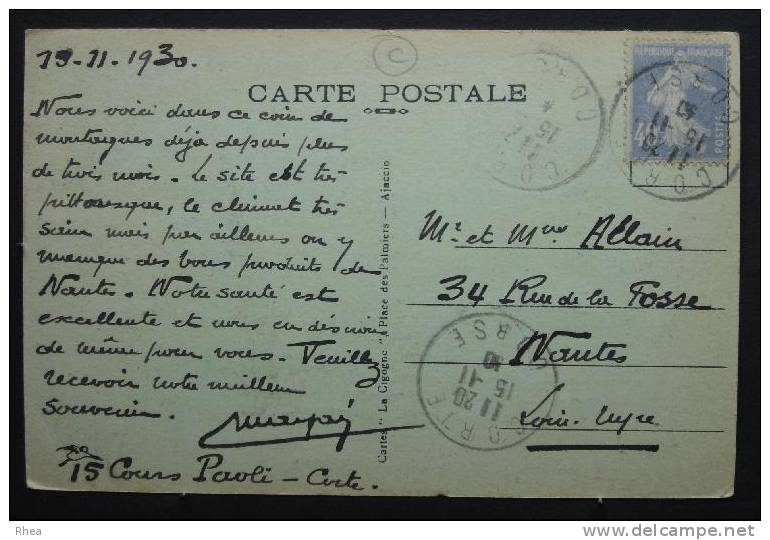 15-11-1930.
CARTE POSTALE
Nous voici dans ce coin de
montagnes déjà depuis plus
de trois mois. Le site est très
pittoresque, le climat très
sain mais par ailleurs on y
manque des bons produits de
Nantes. Notre santé est
excellente et nous en désirons
de même pour vous. Veuillez
recevoir notre meilleur
souvenir.
15 Cours Paoli - Corte.
Cartes "La Cigogne" Place des Palmiers — Ajaccio
REPUBLIQUE FRANÇAISE
POSTES
CORTE
CORSE
11 20
15 -11
30
Mr et Mme Allain
34 Rue de la Fosse
Nantes
Loire-Infre
Rhea
www.delcampe.net